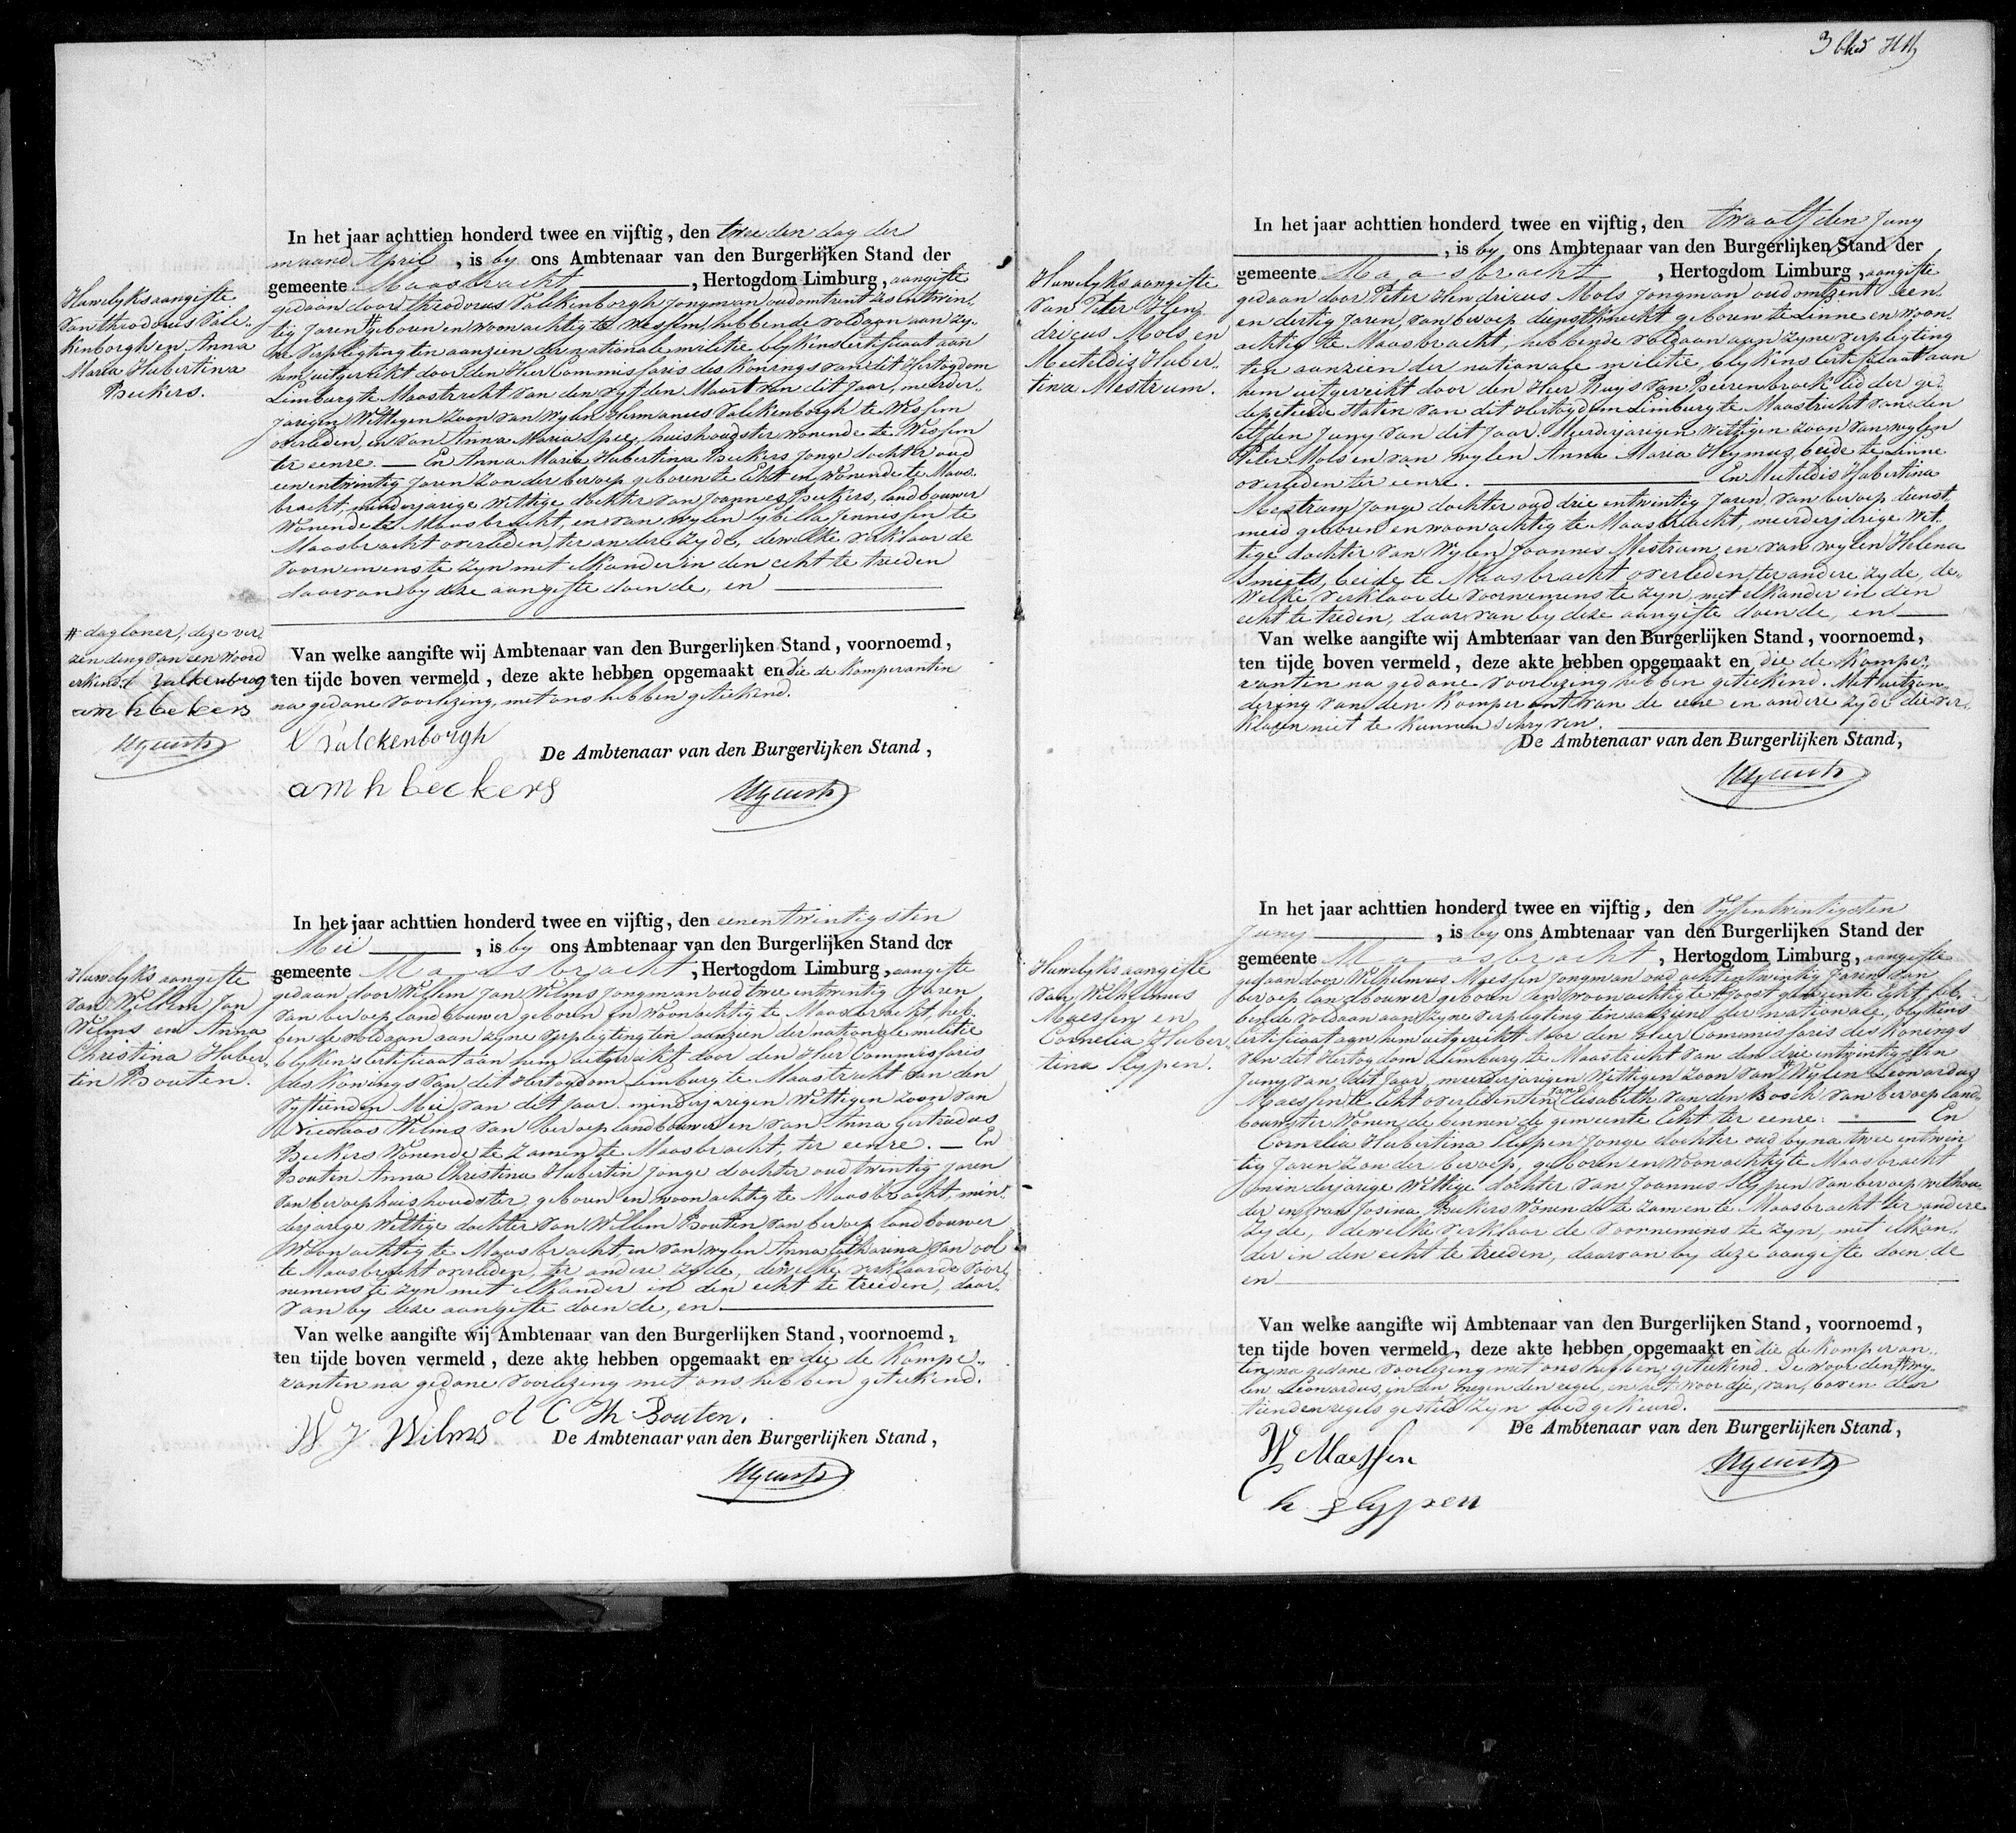 3
Huwelyks aangifte
van theodorus Valc-
kenborgh en Anna
Maria Hubertina
Beckers.
In het jaar achttien honderd twee en vijftig, den tweeden dag der
maand April, is by ons Ambtenaar van den Burgerlijken Stand der
gemeente Maasbracht, Hertogdom Limburg, aangifte
gedaan door theodorus Valckenborgh Jongman oud omtrent
tig Jaren geboren en woonachtig te Wessem, hebbende voldaan aan zy-
ne verpligting ten aanzien der nationale militie blykens certificaat aan
hem uitgereikt door den Heer Commissaris des Konings van dit Hertogdom
Limburg te Maastricht van den vyfden Maart van dit Jaar, meerder-
jarigen Wettigen Zoon van wylen Hermanus Valckenborgh te Wessem
overleden en van Anna Maria Spee, huishoudster wonende te Wessem
ter eenre. — En Anna Maria Hubertina Beckers Jonge dochter oud
eenentwintig Jaren zonder beroep geboren te Echt en wonende te Maas-
bracht, minderjarige wettige dochter van Joannes Beckers, landbouwer
wonende te Maasbracht, en van wylen Sybilla Jennissen te
Maasbracht overleden, ter andere zyde, dewelke verklaarde
voornemenste zyn met elkander in den echt te treeden
daarvan by deze aangifte doende, en
# dagloner, deze ver-
zending van een woord
erkend. Valkenborg
a m h beckers
Van welke aangifte wij Ambtenaar van den Burgerlijken Stand, voornoemd,
ten tijde boven vermeld, deze akte hebben opgemaakt en die de Komparanten
na gedane voorlezing, met ons hebben geteekend.
Valckenborgh
De Ambtenaar van den Burgerlijken Stand,
a m h beckers
Huwelyks aangifte
van Willem Jan
Wilms en Anna
Christina Huber-
tin Bouten.
In het jaar achttien honderd twee en vijftig, den eenentwintigsten
Mei, is by ons Ambtenaar van den Burgerlijken Stand der
gemeente Maasbracht, Hertogdom Limburg, aangifte
gedaan door Willem Jan Wilms Jongman oud twee entwintig Jaren
van beroep landbouwer geboren en woonachtig te Maasbracht, heb-
bende voldaan aan zyne verpligting ten aanzien der nationale militie
blykens certificaat aan hem uitgereikt door den Heer Commissaris
des Konings van dit Hertogdom Limburg te Maastricht van den
vyftienden Mei van dit Jaar. minderjarigen Wettigen Zoon van
Nicolaas Wilms van beroep landbouwer en van Anna Gertrudus
Beckers wonende te Zamen te Maasbracht, ter eenre. — En
Bouten Anna Christina Hubertin Jonge dochter oud twintig Jaren
van beroep huishoudster, geboren en woonachtig te Maasbracht, min-
derjarige Wettige dochter van Willem Bouten van beroep landbouwer
Woonachtig te Maasbracht, en van wylen Anna Catharina Van ool
te Maasbracht overleden, ter andere zyde, dewelke verklaarde voor-
nemens te zyn met elkander in den echt te treeden, daar-
van by deze aangifte doende, en
Van welke aangifte wij Ambtenaar van den Burgerlijken Stand, voornoemd,
ten tijde boven vermeld, deze akte hebben opgemaakt en die de Kompe-
ranten na gedane voorlezing met ons hebben geteekend.
W J Wilms A C H Bouten.
De Ambtenaar van den Burgerlijken Stand,
Huwelyks aangifte
van Peter Hen-
dricus Mols en
Huber-
tina Mestrum.
In het jaar achttien honderd twee en vijftig, den twaalfden Juny
, is by ons Ambtenaar van den Burgerlijken Stand der
gemeente Maasbracht, Hertogdom Limburg, aangifte
gedaan door Peter Hendricus Mols Jongman oud omtrent een-
en dertig Jaren, van beroep dienstknecht geboren te Linne en woon-
achtig te Maasbracht, hebbende voldaan aan zyne verpligting
ten aanzien der nationale militie, blykens Certificaat aan
hem uitgereikt door den Heer Ruys van Beerenbroek lid der ge-
deputeerde Staten van dit Hertogdom Limburg te Maastricht van den
elfden Juny van dit Jaar. Meerderjarigen wettigen zoon van wylen
Peter Mols en van wylen Anna Maria Heymus, beide te Linne
overleden ter eenre. — En Hubertina
Mestrum Jonge dochter oud drie entwintig Jaren, van beroep dienst-
meid geboren en woonachtig te Maasbracht, meerderjarige Wet-
tige dochter van Wylen Joannes Mestrum, en van wylen Helena
Smeets, beide te Maasbracht overleden, ter andere zyde, de-
welke verklaarde voornemens te zyn, met elkander in den
echt te treden, daarvan by deze aangifte doende, en
Van welke aangifte wij Ambtenaar van den Burgerlijken Stand, voornoemd,
ten tijde boven vermeld, deze akte hebben opgemaakt en die de Kompe-
ranten na gedane voorlezing hebben geteekend. Met uitzon-
dering van den Komperent van de eene en andere zyde die ver-
klaren niet te kunnen schryven.
De Ambtenaar van den Burgerlijken Stand,
Huwelyks aangifte
van Wilhelmus
Maessen en
Cornelia Huber-
tina Slypen.
In het jaar achttien honderd twee en vijftig, den vyfentwintigsten
Juny, is by ons Ambtenaar van den Burgerlijken Stand der
gemeente Maasbracht, Hertogdom Limburg, aangifte
gedaan door Wilhelmus Maessen Jongman oud achtentwintig Jaren van
beroep landbouwer geboren en woonachtig te Joost gemeente Echt heb-
bende voldaan aan zyne verpligting ten aanzien der nationale, blykens
Certificaat aan hem uitgereikt door den Heer Commissaris des Konings
van dit Hertogdom Limburg te Maastricht van den drie entwintigsten
Juny van dit Jaar, meerderjarigen Wettigen Zoon van Wylen Leonardus
Maessen te Echt overleden en van Elisabeth van den Bosch van beroep land-
bouwster Wonende binnen de gemeente Echt ter eenre. — En
Cornelia Hubertina Slypen Jonge dochter oud byna twee entwin-
tig Jaren zonder beroep, geboren en woonachtig te Maasbracht
minderjarige Wettige dochter van Joannes Slypen van beroep wethou-
der en van Josina Beckers Wonende te Zamen te Maasbracht ter andere
zyde, dewelke verklaarde voornemens te zyn, met elkan-
der in den echt te treeden, daarvan by deze aangifte doende
en
Van welke aangifte wij Ambtenaar van den Burgerlijken Stand, voornoemd,
ten tijde boven vermeld, deze akte hebben opgemaakt en die de Komperan-
ten na gedane voorlezing met ons hebben geteekend. De woorden wy-
len Leonardus, in den negenden regel, en het woordje, van, boven den
tienden regel gesteld zyn goedgekeurd.
De Ambtenaar van den Burgerlijken Stand,
W Maessen
C h. Slypen